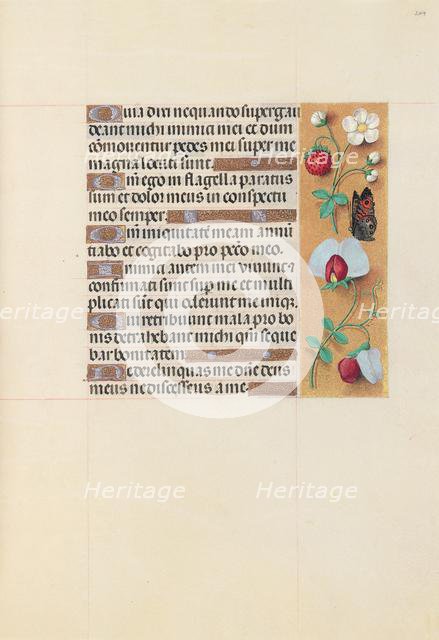 204
Quia dixi nequando supergau
deant michi inimici mei et dum
cōmoventur pedes mei super me
magna locuti sunt.
Qm̄ ego in flagella paratus
sum et dolor meus in conspectu
meo semper.
Qm̄ iniquitatē meam annū
tiabo et cogitabo pro pctō meo.
Inimici autem mei vivunt et
confirmati sunt sup me et multi
plicati sunt qui oderunt me iniq̄.
Qui retribuunt mala pro bo
nis detrahebant michi qm̄ seque
bar bonitatem.
Ne derelinquas me dn̄e deus
meus ne discesseris a me.
Heritage
Heritage
Heritage
Heritage
Heritage
Heritage